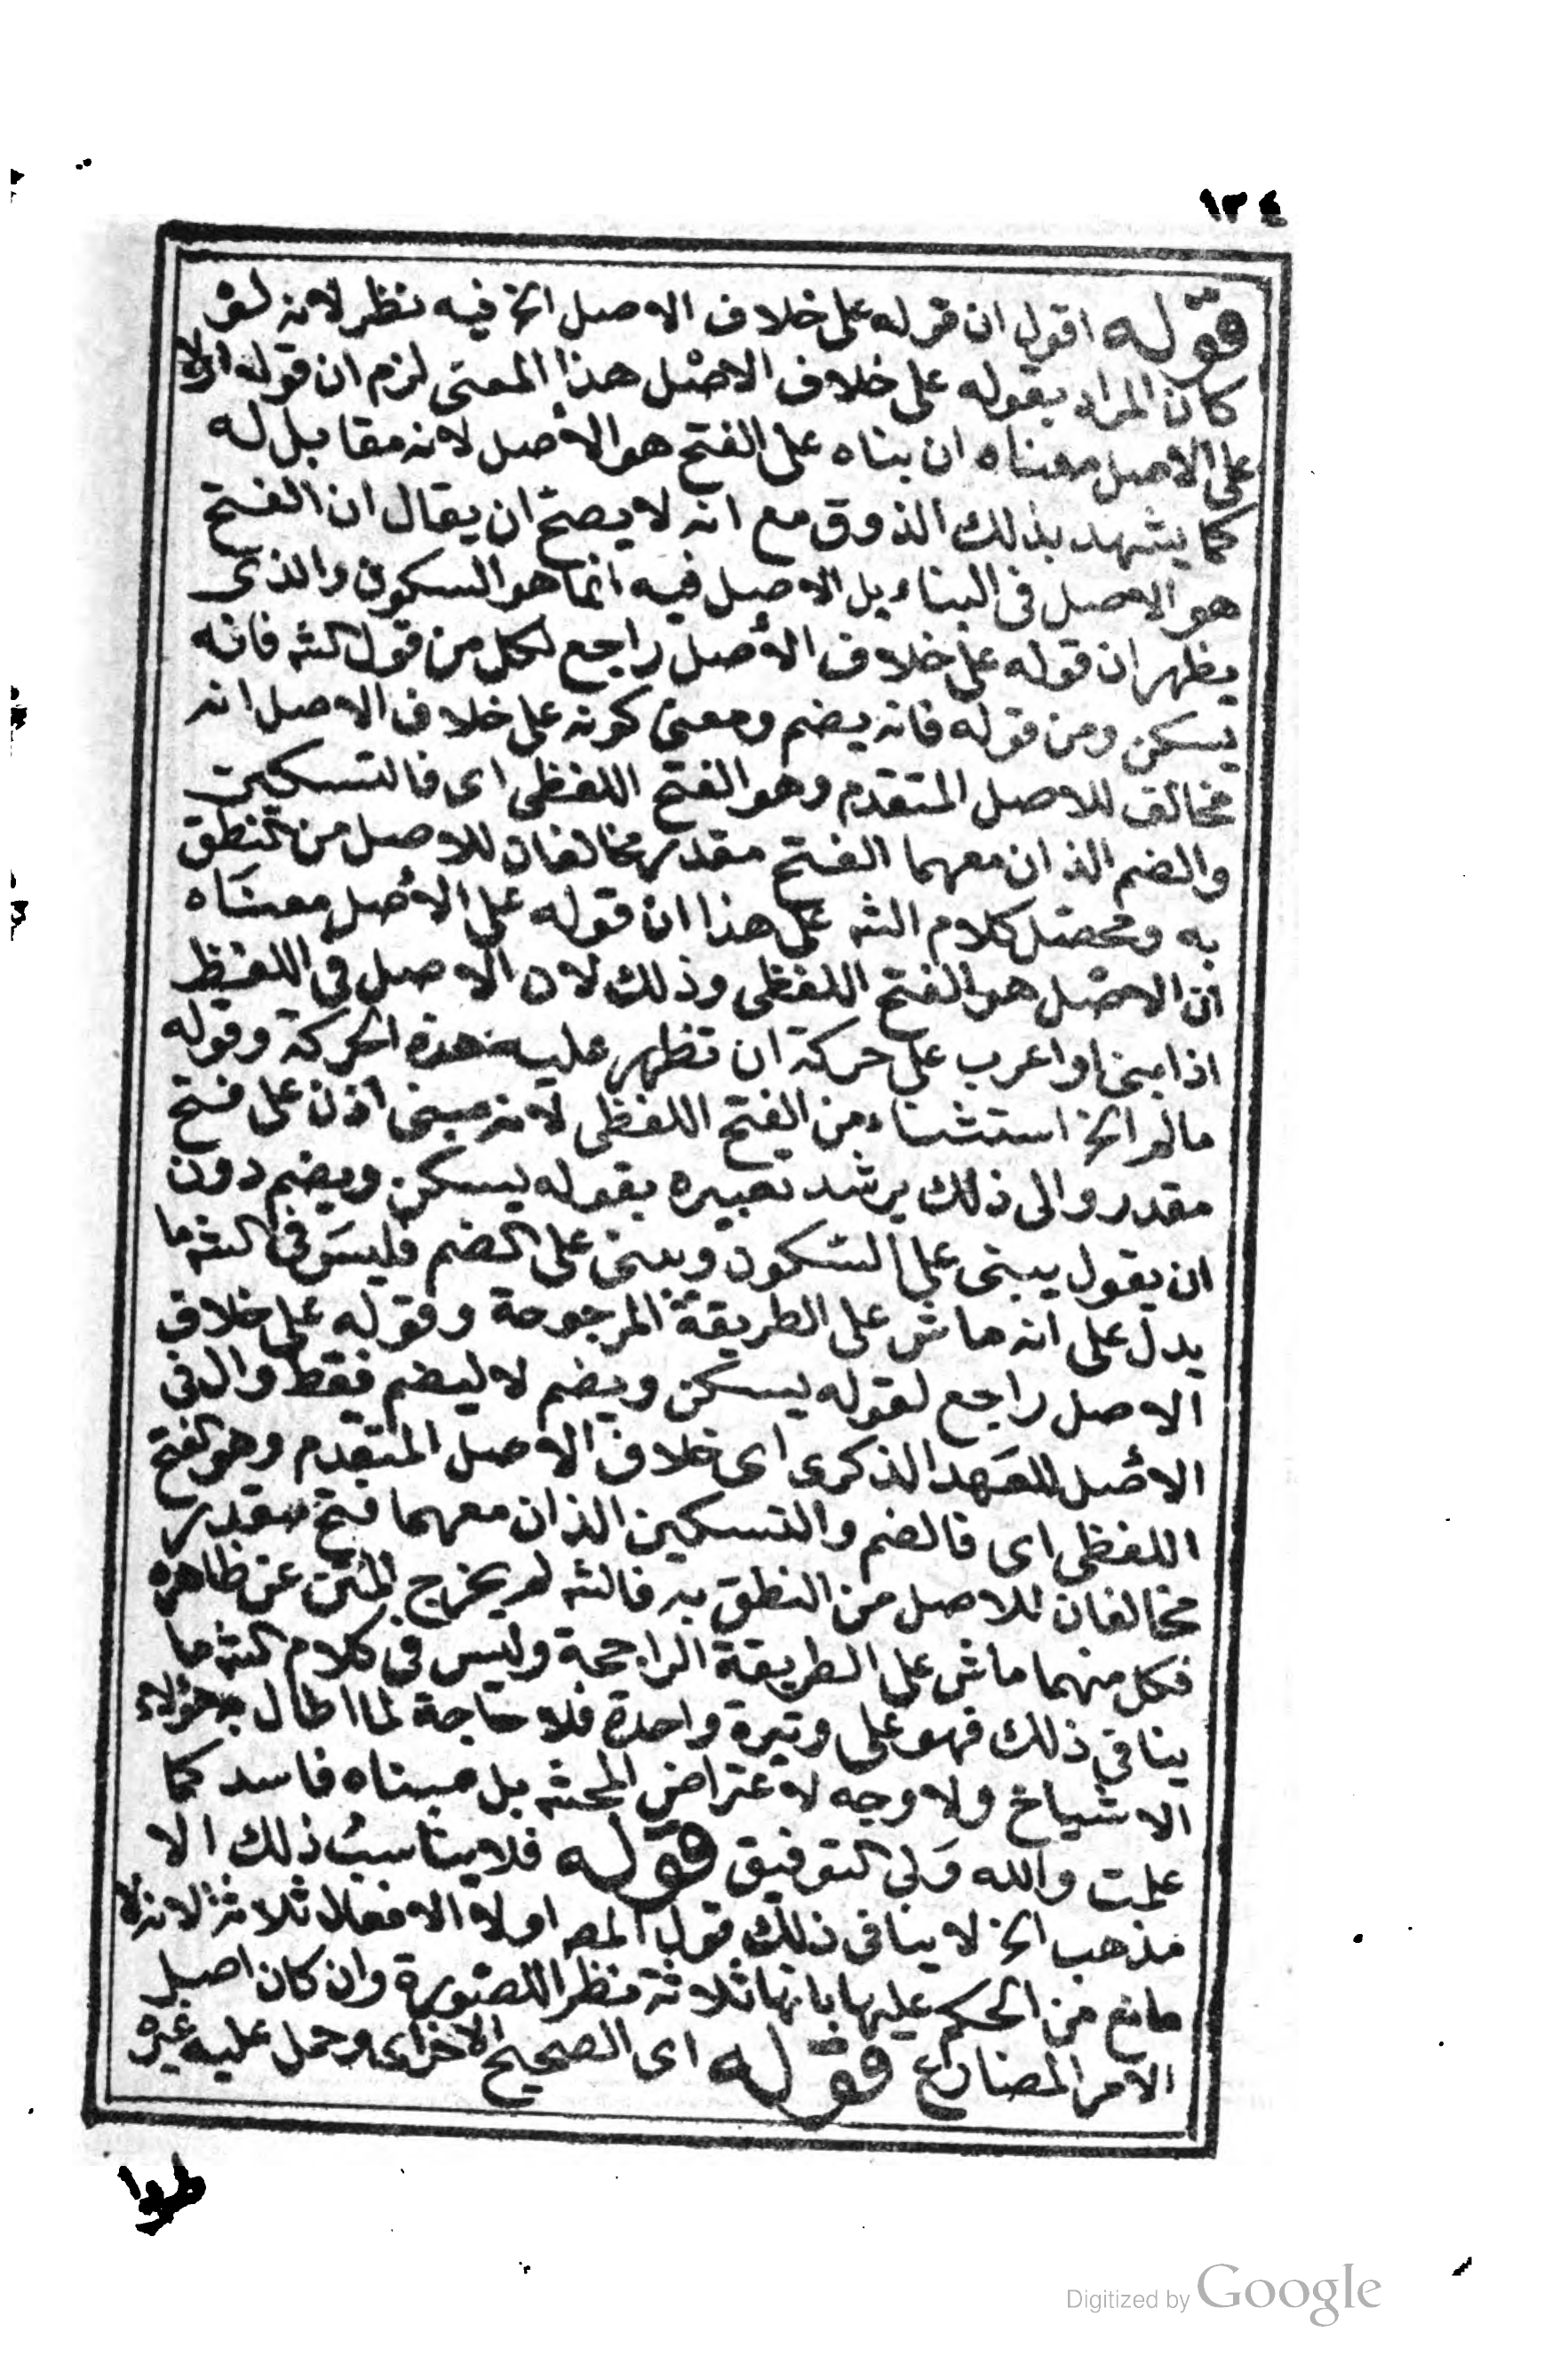 ١٣٤
قوله اقول ان قوله على خلاف الاصل الخ فيه نظر لانه لو
كان المراد بقوله على خلاف الاصل هذا المعنى لزم ان قوله اولا
على الاصل معناه ان بناه على الفتح هو الاصل لانه مقابل له
كما يشهد بذلك الذوق مع انه لا يصح ان يقال ان الفتح
هو الاصل فى البناء بل الاصل فيه انما هو السكون والذى
يظهر ان قوله على خلاف الأصل راجع لكل من قول الشه فانه
يسكن ومن قوله فانه يضم ومعنى كونه على خلاف الاصل انه
مخالف للاصل المتقدم وهو الفتح اللفظى اى فالتسكين
والضم الذان معهما الفتح مقدر مخالفان للاصل من النطق
به ومحصل كلام الشه على هذا ان قوله على الأصل معناه
ان الاصل هو الفتح اللفظى وذلك لان الاصل فى اللفظ
اذا بنى او اعرب على حركة ان تظهر عليه هذه الحركة وقوله
مالم الخ استثناء من الفتح اللفظى لانه مبنى اذن على فتح
مقدر والى ذلك يرشد تعبيره بقوله يسكن ويضم دون
ان يقول يبنى على السكون ويبنى على الضم فليس فى الشه ما
يدل على انه ماش على الطريقة المرجوحة وقوله على خلاف
الاصل راجع لقوله يسكن ويضم لا ليضم فقط وال فى
الاصل للعهد الذكرى اى خلاف الاصل المتقدم وهو الفتح
اللفظى اى فالضم والتسكين الذان معهما فتح مقدر
مخالفان للاصل من النطق به فالشه لم يخرج المتن عن ظاهره
فكل منهما ماش على الطريقة الراجحة وليس فى كلام الشه ما
ينافى ذلك فهو على وتيرة واحدة فلا حاجة لما اطال به هؤلاء
الاشياخ ولا وجه لاعتراض المحشه بل مبناه فاسد كما
علمت والله ولى التوفيق قوله فلا يناسب ذلك الا
مذهب الخ لا ينافى ذلك قول المص اولا الافعال ثلاثة لانه لا
مانع من الحكم عليها بانها ثلاثة نظرا للصورة وان كان اصل
الامر المضارع قوله اى الصحيح الاخر اى وحمل عليه غيره
طردا
Digitized by Google